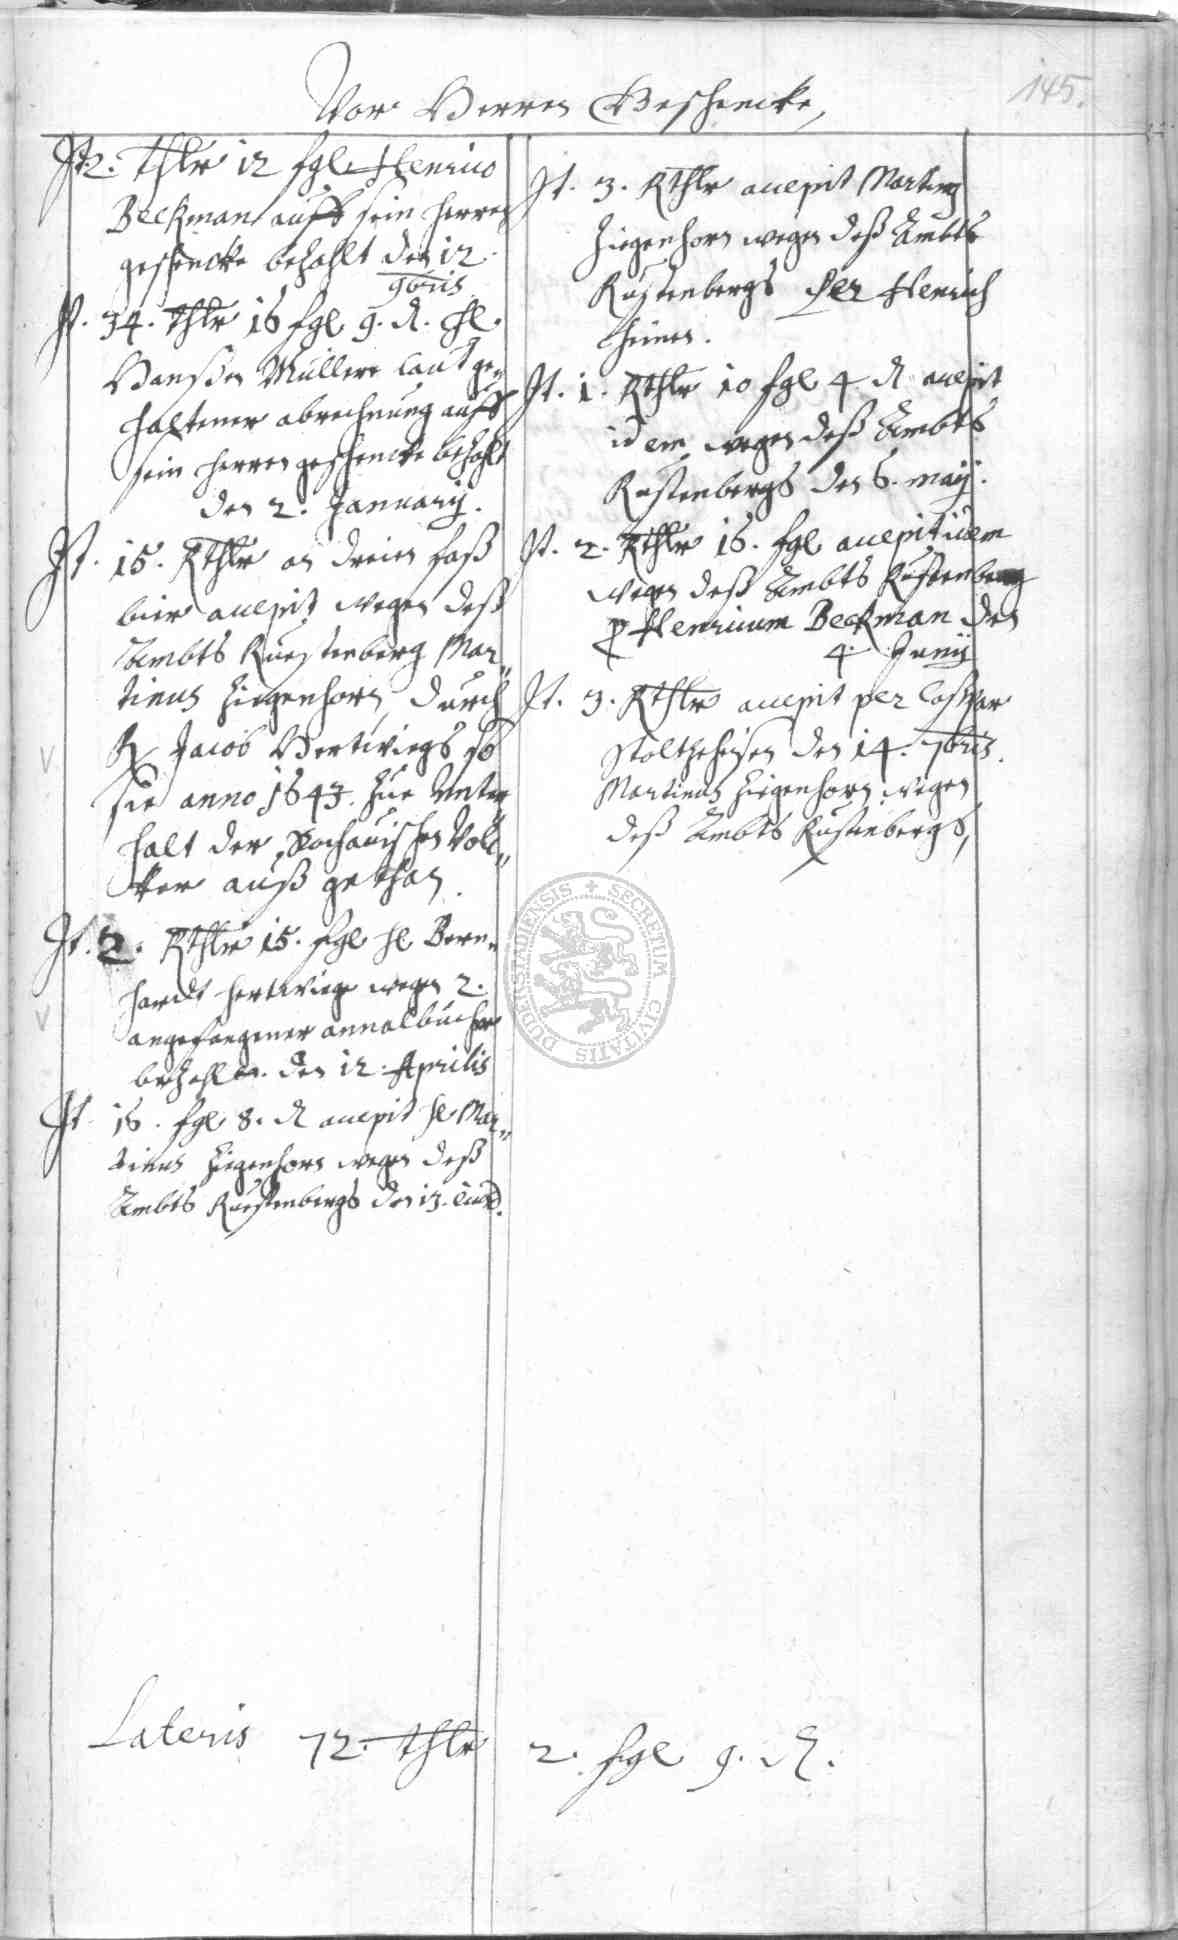 145.
Vor Herren Geschencke,
It. 2. Thlr 12 sgl. Henrico
Beckman auff sein herren
geschencke bezahlt den 12
9bris
It. 34. thlr 16 sgl 9. d. Hl.
Hanßen Mullere laut ge„
haltener abrechnung auff
sein herren geschencke bezahlt
den 2. January.
It. 15. Rthlr an dreien faß
bier accepit wegen deß
Ambts Ruestenberg Mar„
tinus Ziegenhorn, durch
H Jacob Hertwiegs so
sie anno 1643. zue unter
halt der Rochauischen Völ„
cker auß gethan.
It. 2. Rthlr 15. sgl Hl Bern„
hardt Hertwiege wegen 2.
angefangener annalbucher
bezahlen. den 12. Aprilis
It 16. sgl 8. d accepit Hl Mar„
tinus Ziegenhorn wegen deß
Ambts Ruestenbergs den 13. eiusd.
It. 3. Rthlr accepit Martinus
Ziegenhorn wegen deß Ambts
Rustenbergs per Henrich
It. 1. Rthlr 10 sgl 4. d accepit
idem wegen deß Ambts
Rustenbergs den 6. may.
It. 2. Rthlr 16. sgl accepit idem
wegen deß Ambts Rustenberg
p Henricum Beckman den
4. Juny
It. 3. Rthlr accepit per Caspar
Stoltzheisen den 14. 7bris.
Martinus Ziegenhorn wegen
deß Ambts Rustenbergs,
SECRETUM CIVITATIS DUDERSTADIENSIS
Lateris 72. thlr 2. sgl 9. d.